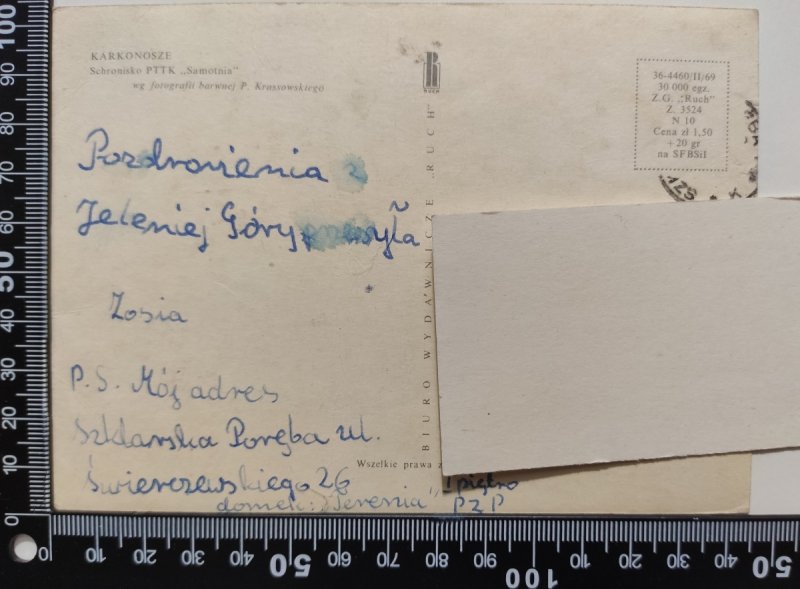 KARKONOSZE
Schronisko PTTK „Samotnia"
wg fotografii barwnej P. Krassowskiego
RUCH
36-4460/II/69
30 000 egz.
Z.G. „Ruch"
Z. 3524
N 10
Cena zł 1,50
+20 gr
na SFBSiI
BIURO WYDAWNICZE „RUCH"
Pozdrowienia z
Jeleniej Góry przesyła
Zosia
P.S. Mój adres
Szklarska Poręba ul.
Świerczewskiego 26
domek: „Terenia" I piętro
PZP
Wszelkie prawa z
100
90
80
70
60
50
40
30
20
10
0
0
10
20
30
40
50
60
70
80
90
100
10
20
30
40
50